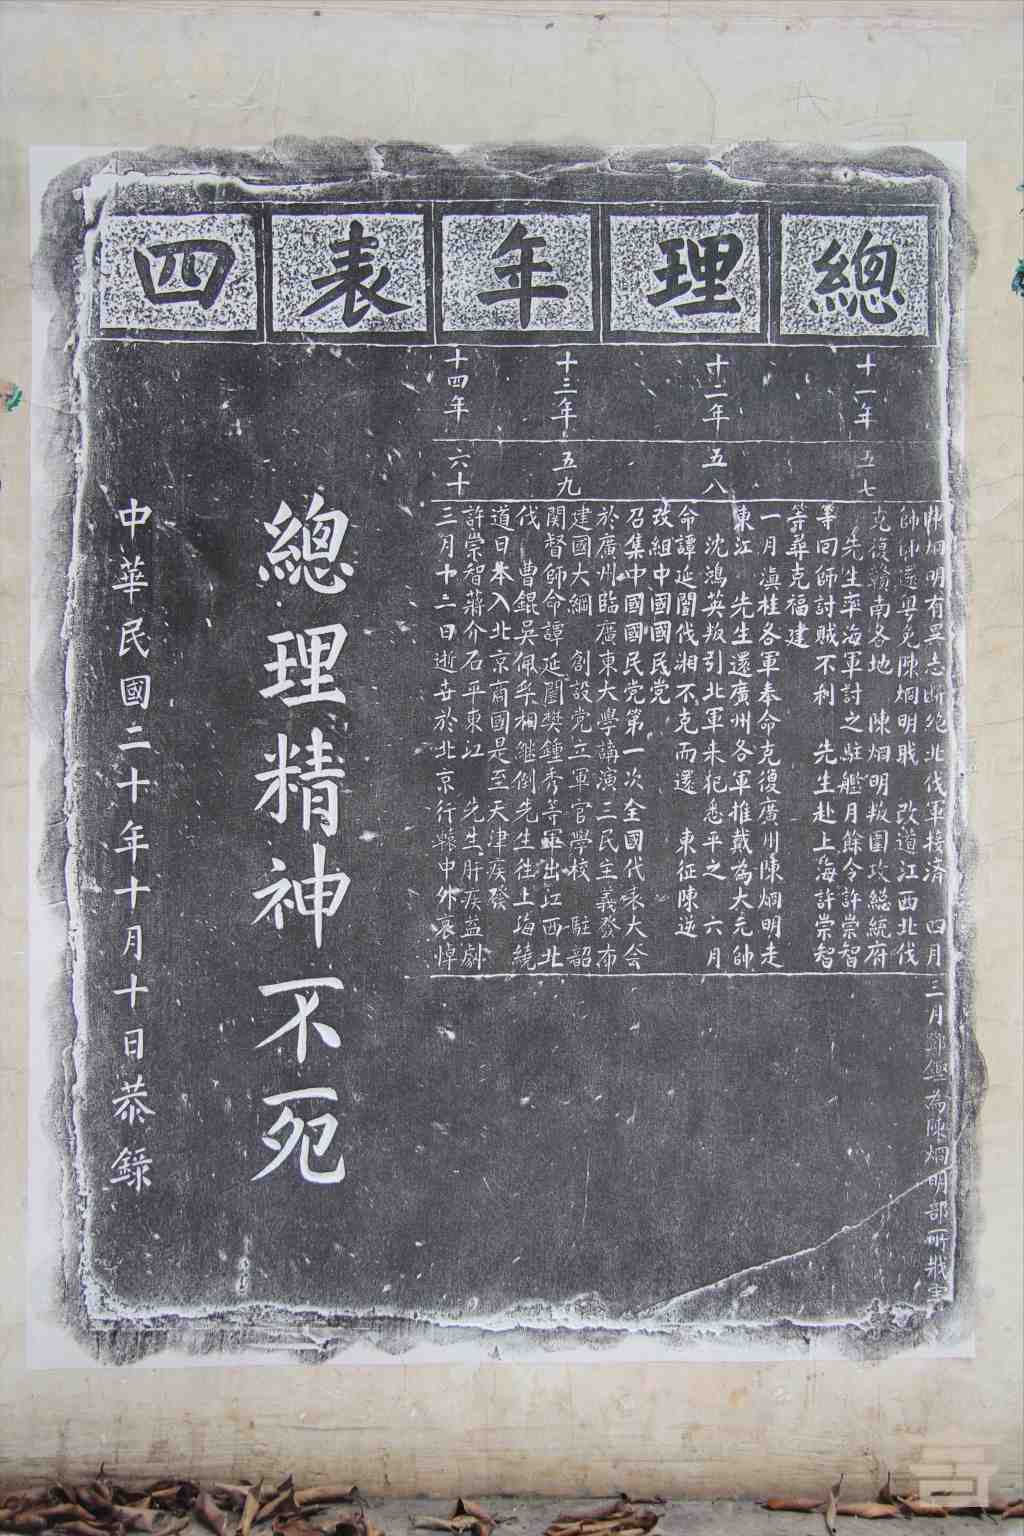 總理年表四
十一年
五七
炯明有異志斷絶北伐軍接済　四月
師師還粤免陳炯明職　改道江西北伐
克復贛南各地　陳炯明叛圍攻總統府
先生率海軍討之駐艦月餘令許崇智
等回師討賊不利　先生赴上海許崇智
等葬克福建
三月鄧鏗為陳炯明部所戕害
十二年
五八
一月滇桂各軍奉命克復廣州陳炯明走
東江　先生還廣州各軍推戴為大元帥
沈鴻英叛引北軍来犯悉平之　六月
命譚延闓伐湘不克而還　東征陳逆
改組中國國民党
十三年
五九
召集中國國民党第一次全國代表大会
於廣州臨廣東大學講演三民主義發布
建國大綱　創設党立軍官學校　駐韶
関督師命譚延闓樊鍾秀等軍出江西北
伐　曹錕吴佩孚相継倒先生往上海繞
道日本入北京商國是至天津疾發
十四年
六十
許崇智蔣介石平東江　先生肝疾益劇
三月十二日逝世於北京行轅中外哀悼
總理精神不死
中華民國二十年十月十日恭錄